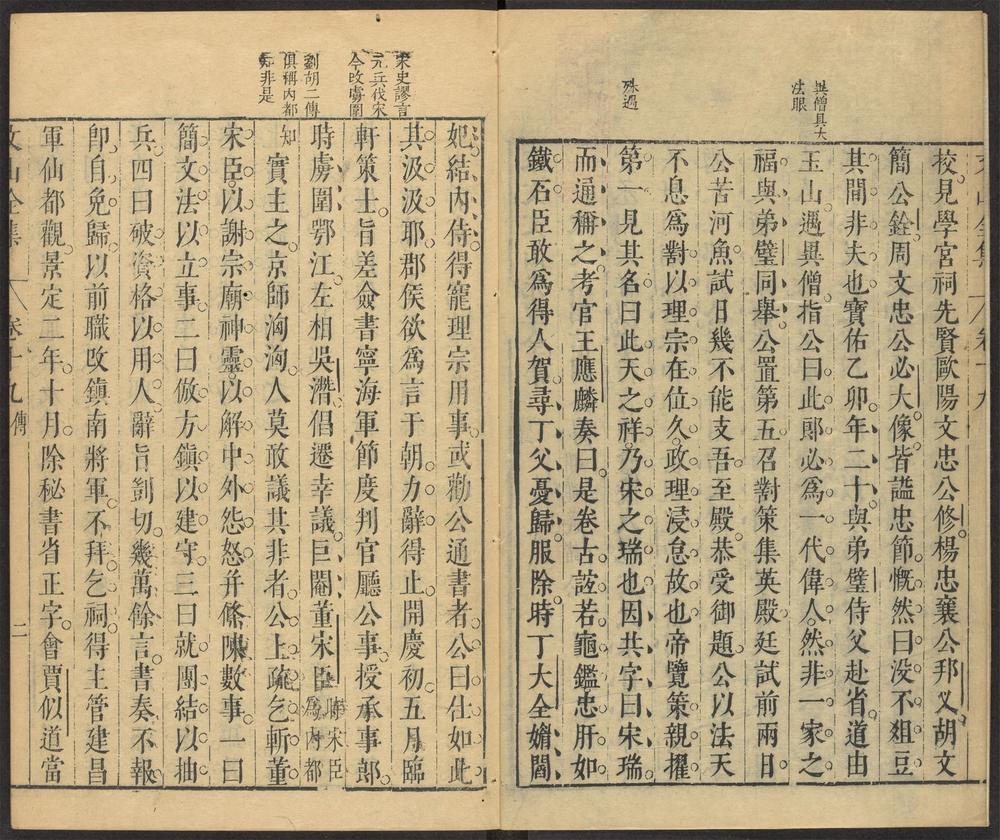 異僧具大
法眼
殊遇
校見學宮祠先賢歐陽文忠公修楊忠襄公邦乂胡文
簡公銓周文忠公必大像皆謚忠節慨然曰没不俎豆
其間非夫也寶佑乙卯年二十與弟璧侍父赴省道由
玉山遇異僧指公曰此郎必爲一代偉人然非一家之
福與弟璧同舉公置第五召對策集英殿廷試前兩日
公苦河魚試日幾不能支吾至殿恭受御題公以法天
不息爲對以理宗在位久政理浸怠故也帝覽策親擢
第一見其名曰此天之祥乃宋之瑞也因共字曰宋瑞
而通稱之考官王應麟奏曰是卷古誼若龜鑑忠肝如
鐵石臣敢爲得人賀尋丁父憂歸服除時丁大全媚閻
宋史謬言
元兵伐宋
今改虜圍
劉胡二傳
俱稱内都
知非是
妃結内侍得寵理宗用事或勸公通書者公曰仕如此
其汲汲耶郡侯欲爲言于朝力辭得止開慶初五月臨
軒策士旨差僉書寧海軍節度判官廳公事授承事郎
時虜圍鄂江左相吳潛倡遷幸議巨閹董宋臣時宋臣爲内都
知實主之京師洶洶人莫敢議其非者公上疏乞斬董
宋臣以謝宗廟神靈以解中外怨怒并條陳數事一曰
簡文法以立事二曰倣方鎮以建守三曰就團結以抽
兵四曰破資格以用人辭旨剴切幾萬餘言書奏不報
卽自免歸以前職改鎮南將軍不拜乞祠得主管建昌
軍仙都觀景定二年十月除秘書省正字會賈似道當
文山全集 卷十九 傳 二